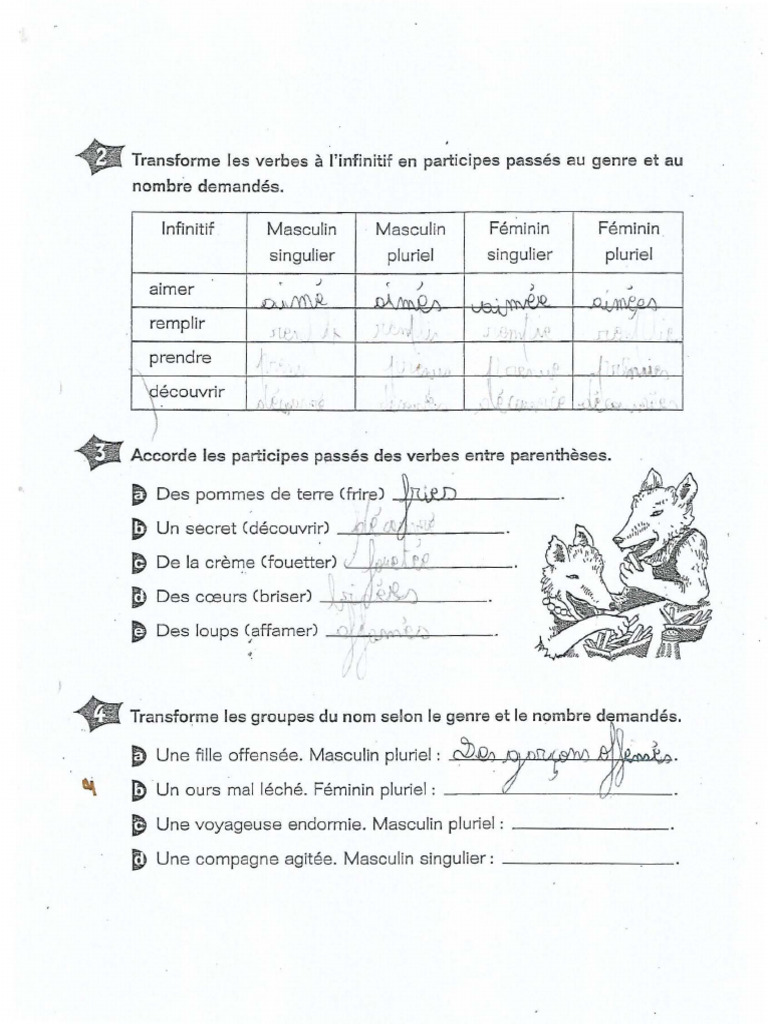 2 Transforme les verbes à l'infinitif en participes passés au genre et au
nombre demandés.
Infinitif Masculin singulier Masculin pluriel Féminin singulier Féminin pluriel
aimer aimé aimés aimée aimées
remplir
prendre
découvrir
3 Accorde les participes passés des verbes entre parenthèses.
a Des pommes de terre (frire) fries.
b Un secret (découvrir) .
c De la crème (fouetter) .
d Des cœurs (briser) .
e Des loups (affamer) .
4 Transforme les groupes du nom selon le genre et le nombre demandés.
a Une fille offensée. Masculin pluriel : Des garçons offensés.
b Un ours mal léché. Féminin pluriel : .
c Une voyageuse endormie. Masculin pluriel : .
d Une compagne agitée. Masculin singulier : .